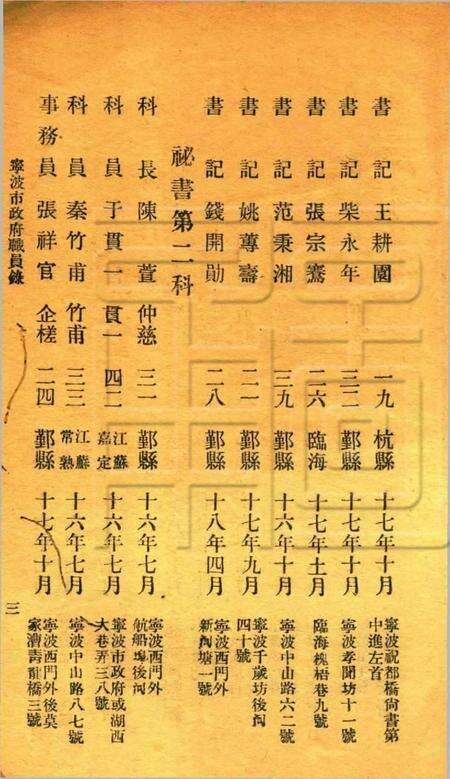 書記 王耕園 一九 杭縣 十七年十月 寧波祝都橋尙書第
中進左首
書記 柴永年 三二 鄞縣 十七年十月 寧波孝聞坊十一號
書記 張宗騫 二六 臨海 十七年十月 臨海槐梧巷九號
書記 范秉湘 三九 鄞縣 十六年十月 寧波中山路六二號
書記 姚蓴壽 二一 鄞縣 十七年九月 寧波千歲坊後河
四十號
書記 錢開勛 二八 鄞縣 十八年四月 寧波西門外
新河塘一號
祕書第二科
科長 陳萱 仲慈 三一 鄞縣 十六年七月 寧波西門外
航船埠後河
科員 于貫一 貫一 四二 江蘇嘉定 十六年七月 寧波市政府或湖西
大巷弄三八號
科員 秦竹甫 竹甫 三三 江蘇常熟 十六年七月 寧波中山路八七號
事務員 張祥官 企槎 二四 鄞縣 十七年十月 寧波西門外後莫
家漕靑龍橋三號
寧波市政府職員錄
三